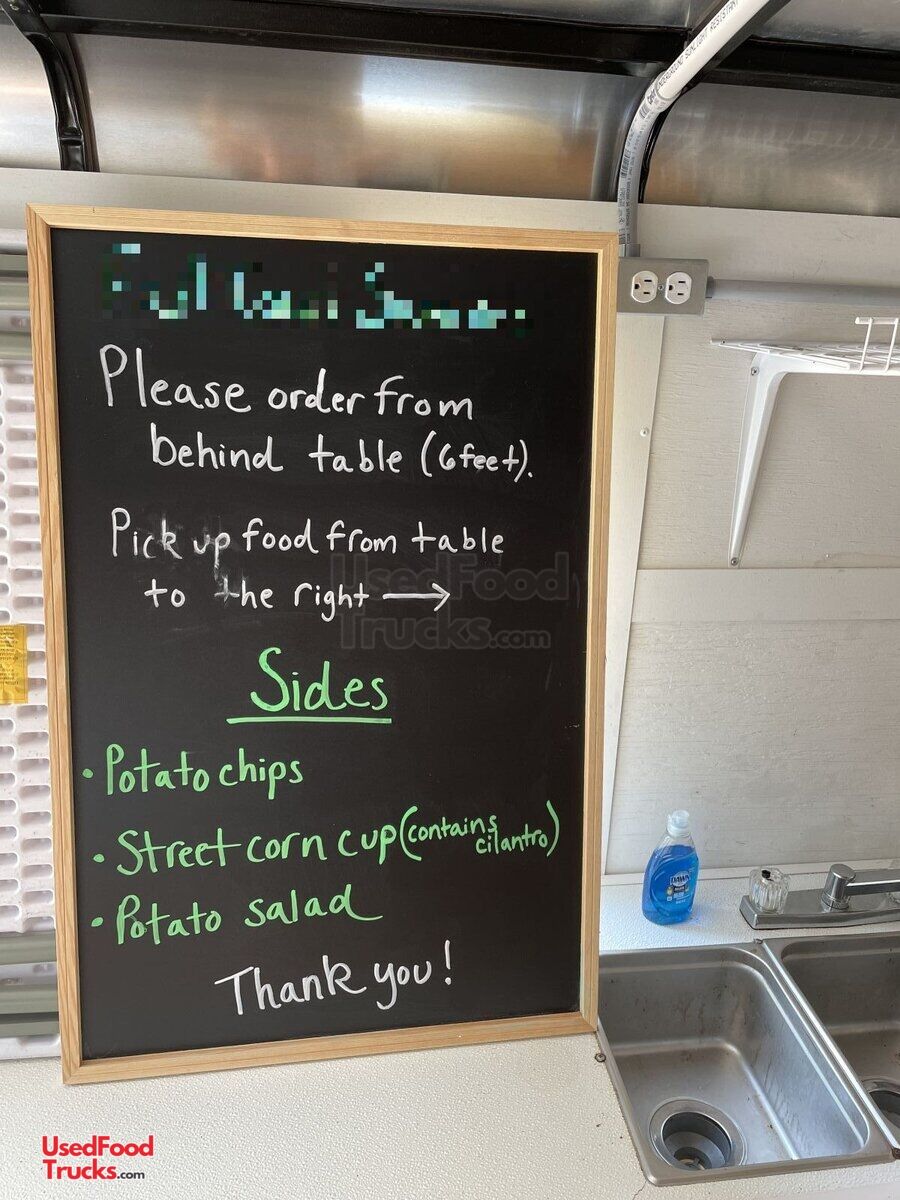 Please order from
behind table (6feet).
Pick up food from table
to the right →
Sides
• Potato chips
• Street corn cup (contains
cilantro)
• Potato salad
Thank you!
UsedFood
Trucks.com
DAWN
UsedFood
Trucks.com